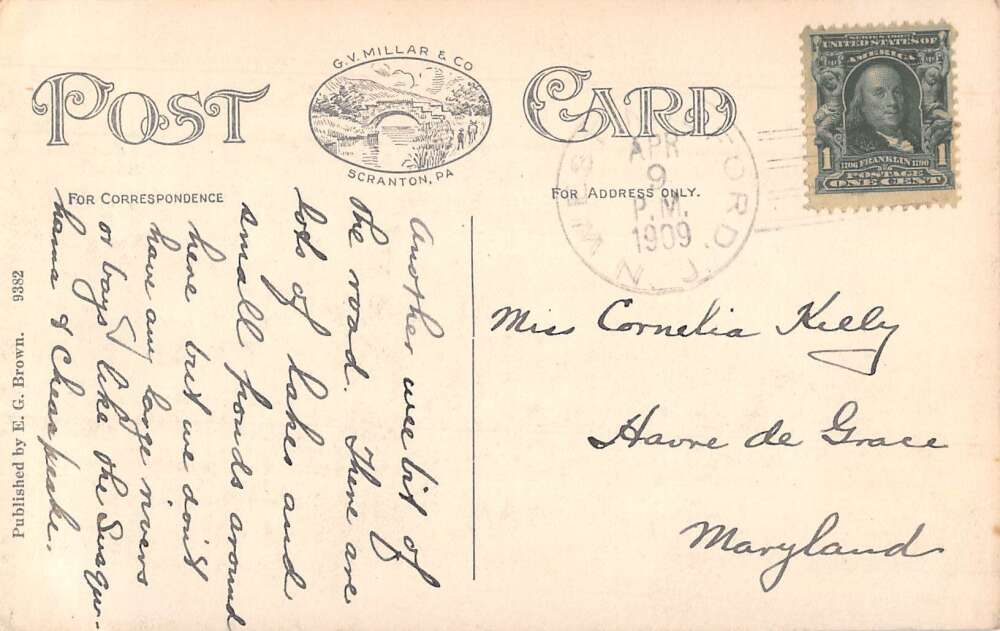 POST CARD
G.V. MILLAR & CO
SCRANTON, PA
SERIES 1902
UNITED STATES OF
AMERICA
1 1706 FRANKLIN 1790 1
POSTAGE
ONE CENT
WEST FORD
APR
9
P.M.
1909
N.J.
FOR CORRESPONDENCE
FOR ADDRESS ONLY.
Another wee bit of
the road. There are
lots of lakes and
small ponds around
here but we don't
have any large rivers
or bays like the Susque-
hanna & Cheaspeake.
Miss Cornelia Kelly
Havre de Grace
Maryland
Published by E. G. Brown. 9382